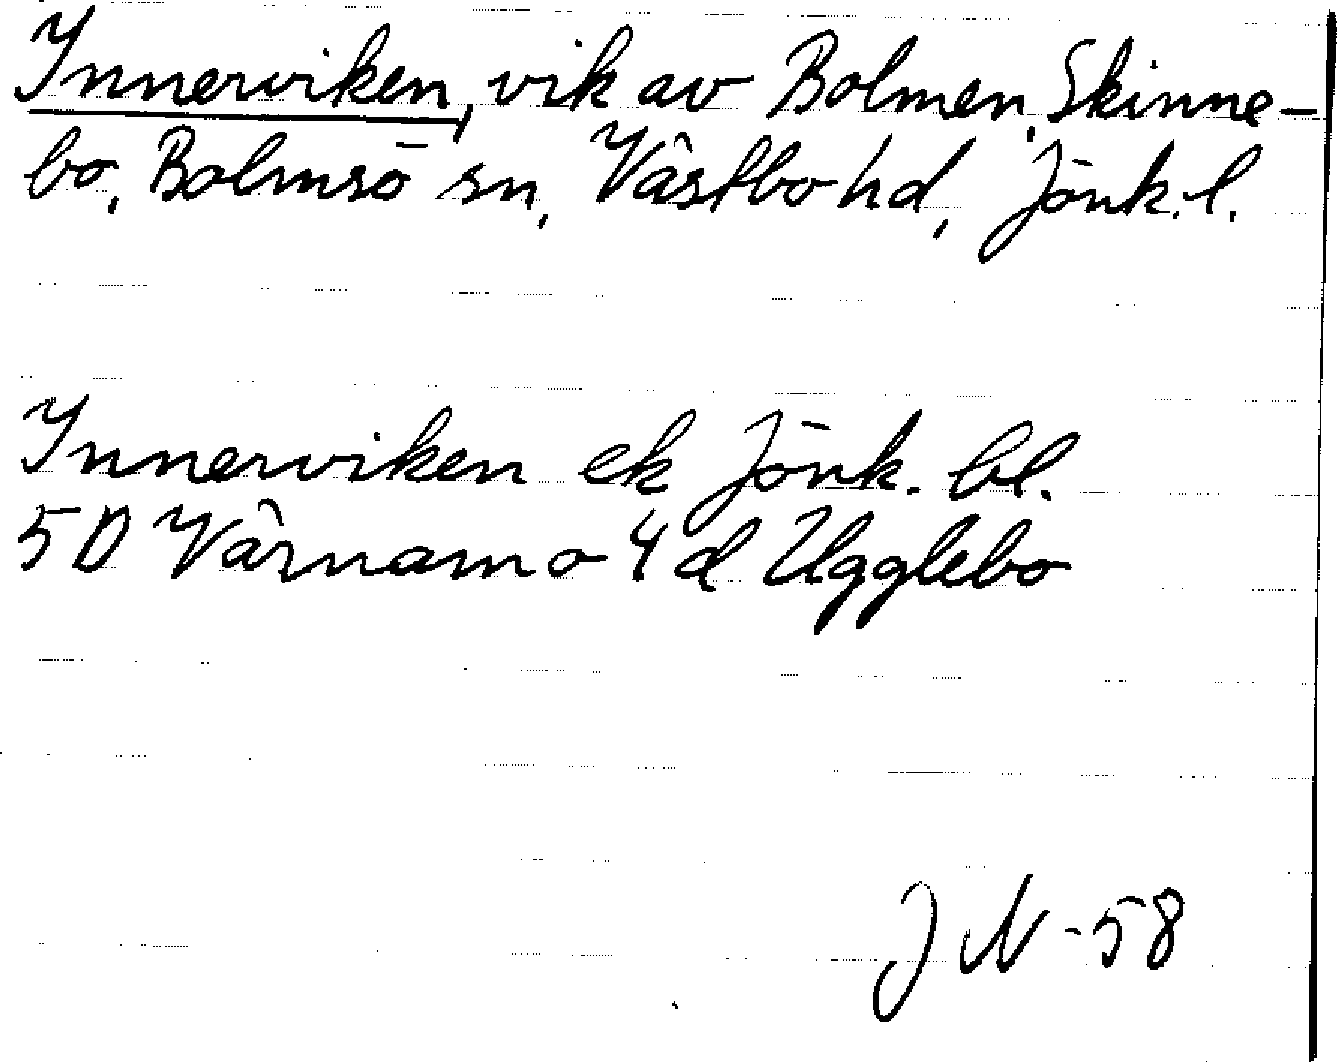 Innerviken, vik av Bolmen, Skinne-
bo, Bolmsö sn, Västbo hd, Jönk. l.
Innerviken ek Jönk. bl.
5D Värnamo 4d Ugglebo
J N -58